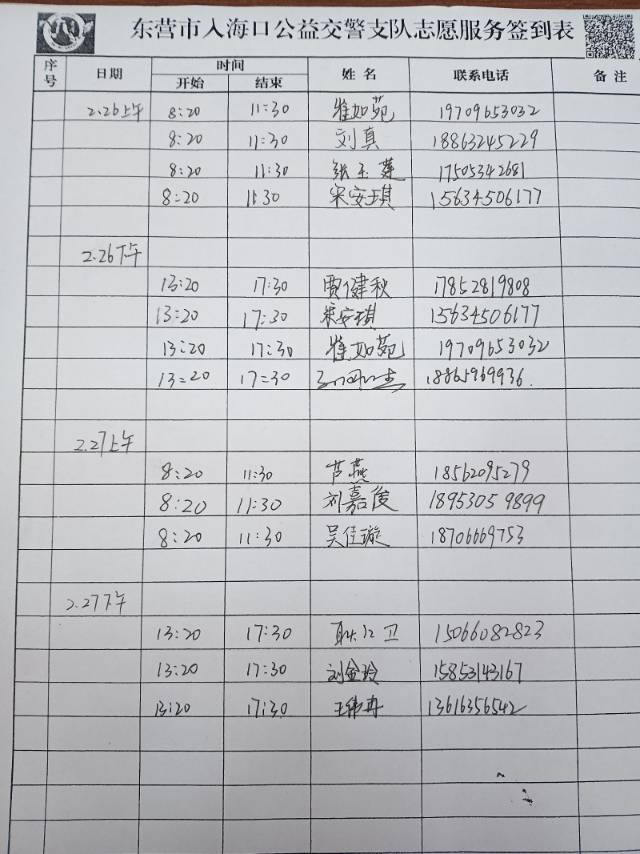 东营市入海口公益交警支队志愿服务签到表
序号 日期 时间 姓名 联系电话 备注
开始 结束
2.26上午 8:20 11:30 如苑 19709653032
8:20 11:30 刘真 18863245229
8:20 11:30 张玉莲 17505342681
8:20 11:30 宋安琪 15634506177
2.26下午
13:20 17:30 贾健秋 17852819808
13:20 17:30 宋安琪 15634506177
13:20 17:30 如苑 19709653032
13:20 17:30 18865969936
2.27上午
8:20 11:30 芦燕 18562095279
8:20 11:30 刘嘉俊 18953059899
8:20 11:30 吴佳璇 18706669753
2.27下午
13:20 17:30 耿江卫 15066082823
13:20 17:30 刘金玲 15853143167
13:20 17:30 王伟丹 13616356542